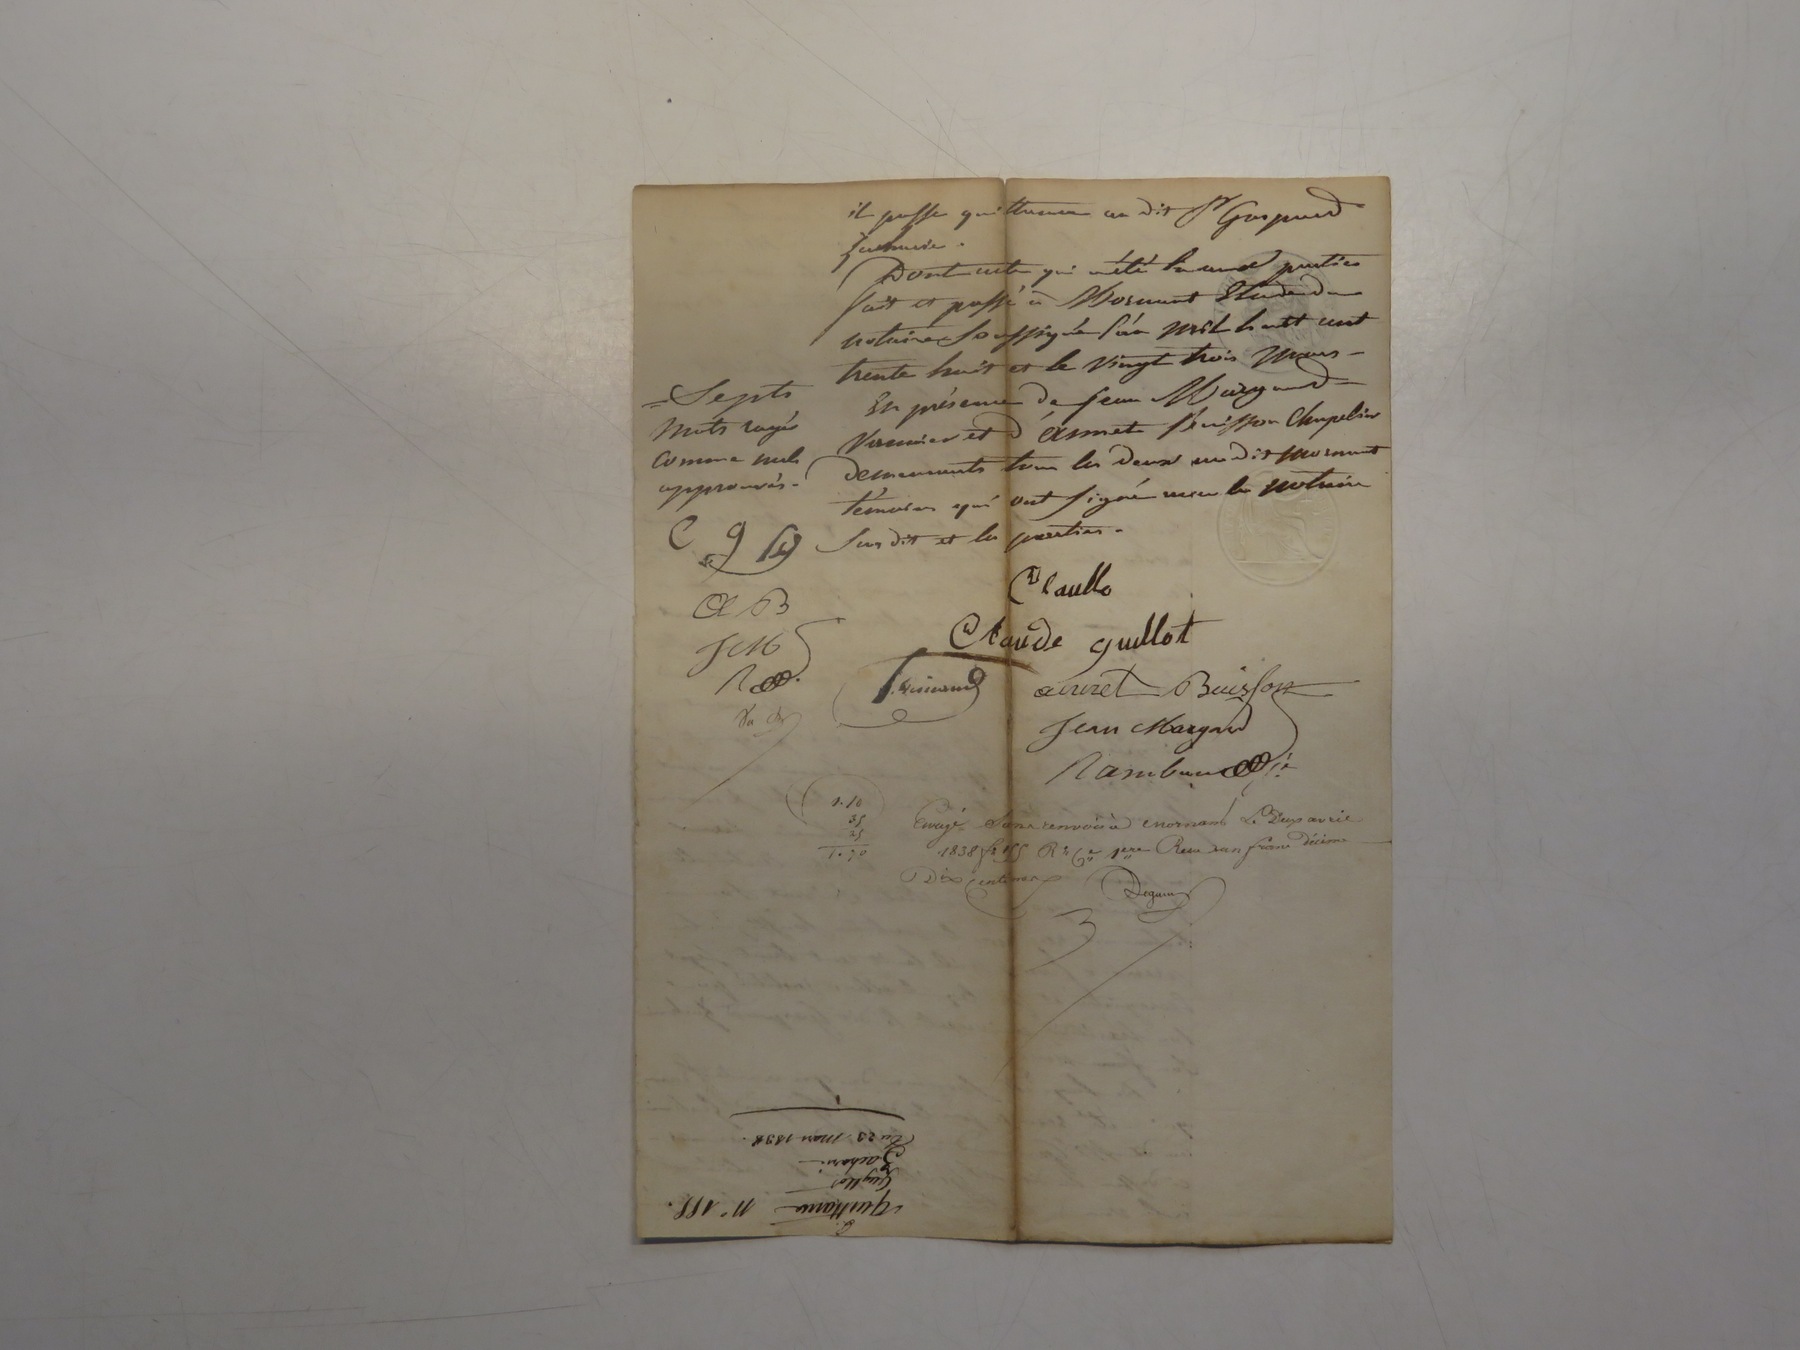 il passe quittance au dit Sr Gaspard
Zacharie.
Dont acte qui a été lu aux parties
fait et passé à Mornant Etude du
notaire soussigné l'an mil huit cent
trente huit et le vingt trois mars
En présence de Jean Margand
et d'Aimet Buisson Chapelier
demeurants tous les deux au dit Mornant
témoins qui ont signé avec le notaire
sus dit et les parties.
= Septs
mots rayés
comme nuls
approuvés.
C g
B
JM
Claude guillot
aimet Buisson
Jean Margand
1.10
35
25
1.70
Enregé sans renvois à Mornant Le Deux avril
1838 Reçu un franc décime
Dix centimes
quittance n° 155.
Guyllot
Zacharie
Du 23 mars 1838.